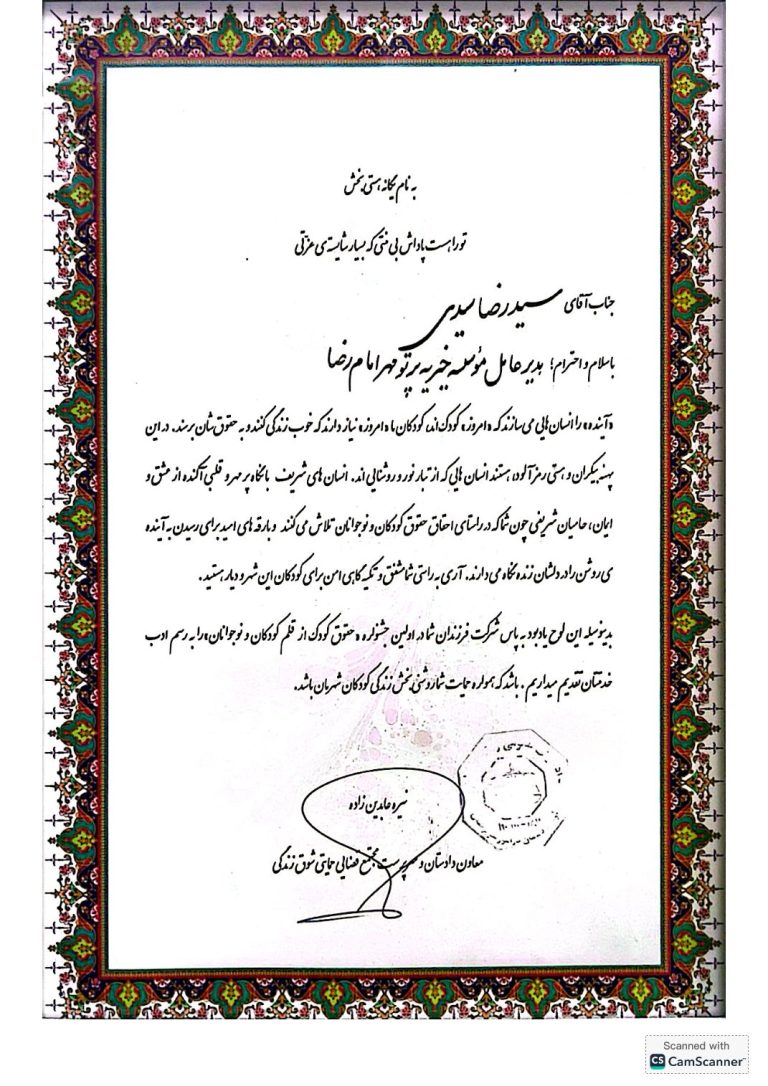 به نام یگانه هستی بخش
تو راست پاداش بی منتی که بسیار شایسته‌ی عزتی
جناب آقای سید رضا سیدی
با سلام و احترام؛ مدیر عامل مؤسسه خیریه پرتو مهر امام رضا
«آینده» را انسان‌هایی می‌سازند که «امروز» کودک‌اند، کودکان ما «امروز» نیاز دارند که خوب زندگی کنند و به حقوق شان برسند. در این
پهنه بیکران و هستی رمز آلود، هستند انسان هایی که از تبار نور و روشنایی اند. انسان های شریف با نگاه پر مهر و قلبی آکنده از عشق و
ایمان، حامیان شریفی چون شما که در راستای احقاق حقوق کودکان و نوجوانان تلاش می کنند و بارقه های امید برای رسیدن به آینده
ی روشن را در دلشان زنده نگاه می دارند. آری به راستی شما مشفق و تکیه گاهی امن برای کودکان این شهر و دیار هستید.
بدینوسیله این لوح یادبود به پاس شرکت فرزندان شما در اولین جشنواره «حقوق کودک از قلم کودکان و نوجوانان» را به رسم ادب
خدمتتان تقدیم میداریم. باشد که همواره حمایت شما روشنی بخش زندگی کودکان شهرمان باشد.
نیره عابدین زاده
معاون دادستان و سرپرست مجتمع قضایی حمایتی شوق زندگی
Scanned with
CS CamScanner